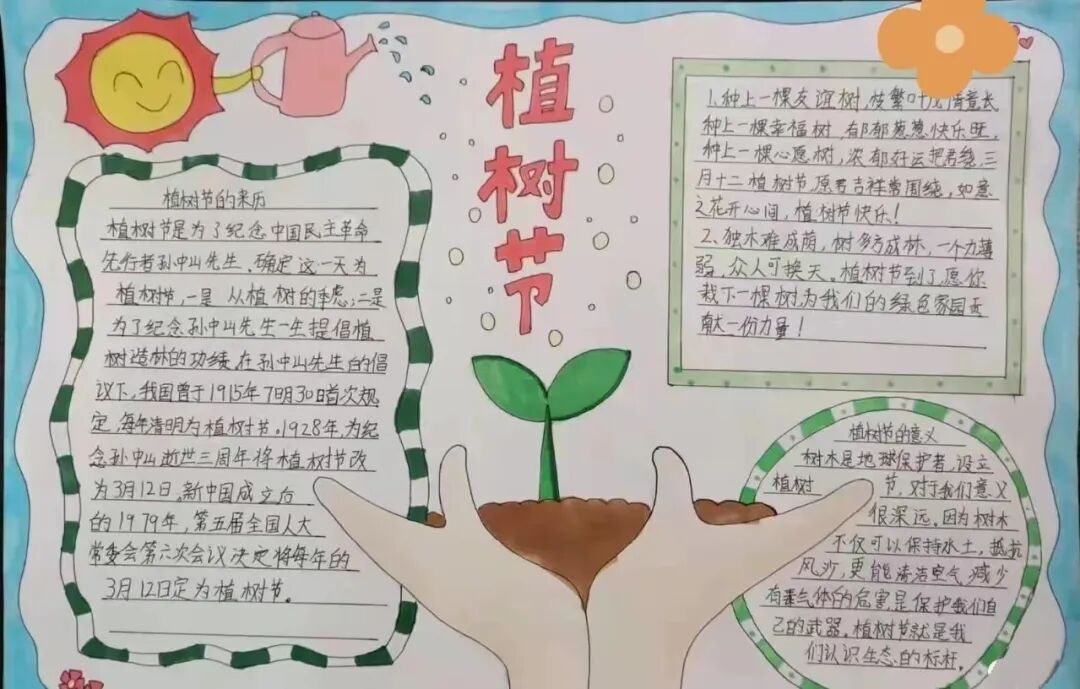 植树节
植树节的来历
植树节是为了纪念中国民主革命
先行者孙中山先生。确定这一天为
植树节,一是 从植树的季虑;二是
为了纪念孙中山先生一生提倡植
树造林的功绩。在孙中山先生的倡
议下,我国曾于1915年7月30日首次规
定,每年清明为植树节。1928年,为纪
念孙中山逝世三周年将植树节改
为3月12日。新中国成立后
的1979年,第五届全国人大
常委会第六次会议决定将每年的
3月12日定为植树节。
1、种上一棵友谊树,枝繁叶茂情意长
种上一棵幸福树 郁郁葱葱快乐旺,
种上一棵心愿树,浓郁好运把君绕,三
月十二植树节,愿君吉祥常围绕,如意
之花开心间,植树节快乐!
2、独木难成荫,树多方成林,一个力薄
弱,众人可换天。植树节到了,愿你
栽下一棵树为我们的绿色家园贡
献一份力量!
植树节的意义
树木是地球保护者,设立
植树 节,对于我们意义
很深远。因为树木
不仅可以保持水土,抵抗
风沙,更能清洁空气,减少
有毒气体的危害,是保护我们自
己的武器。植树节就是我
们认识生态的标杆。